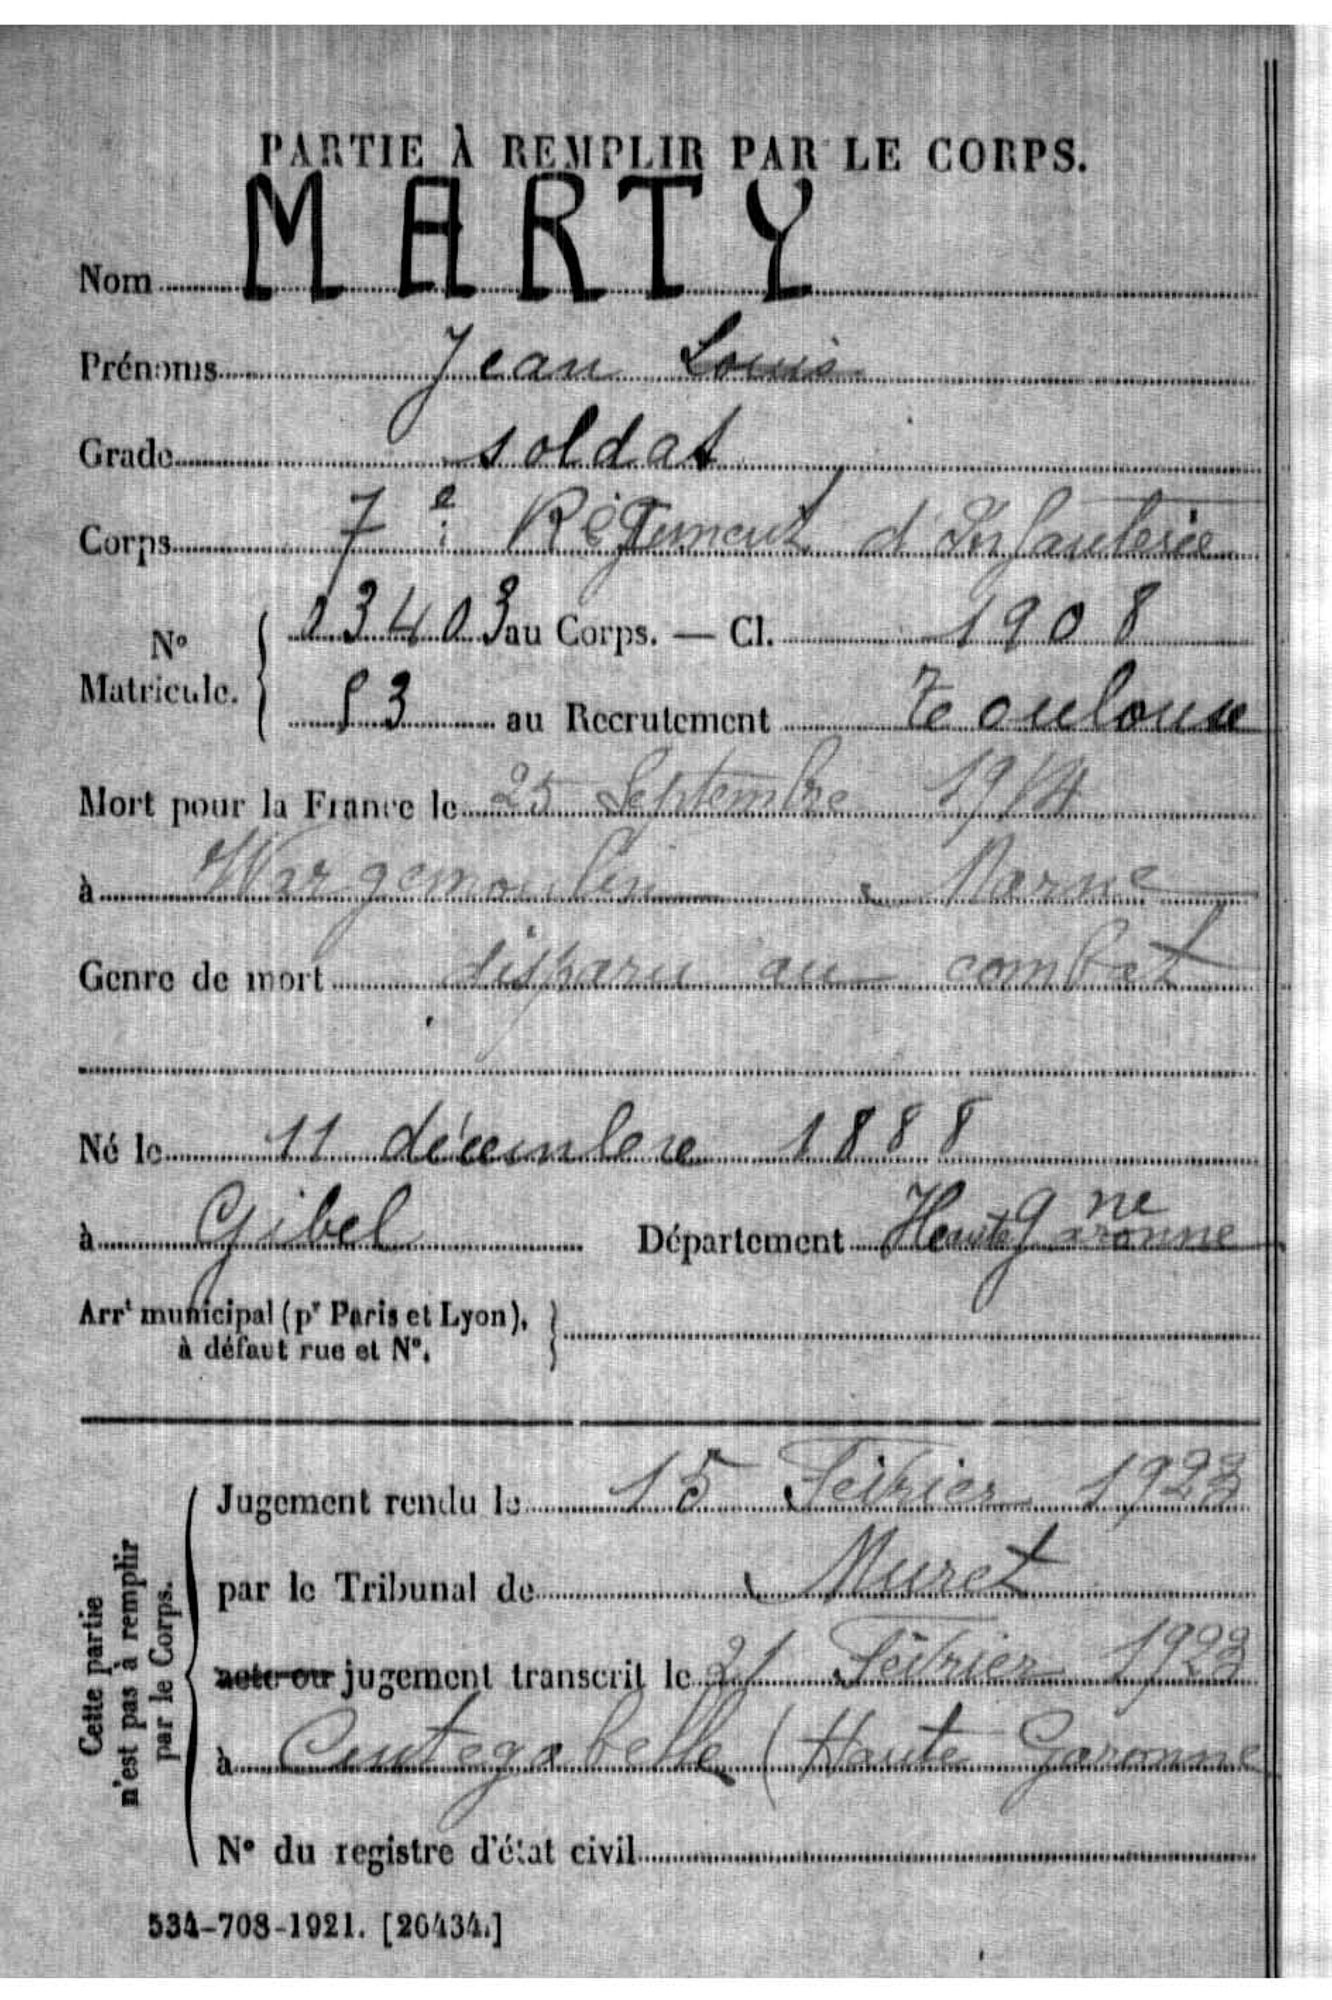 PARTIE À REMPLIR PAR LE CORPS.
Nom MARTY
Prénoms Jean Louis
Grade soldat
Corps 7e Régiment d'Infanterie
No Matricule. 03403 au Corps. — Cl. 1908
53 au Recrutement Toulouse
Mort pour la France le 25 Septembre 1914
à Wargemoulin Marne
Genre de mort disparu au combat
Né le 11 décembre 1888
à Gibel Département Haute Garonne
Arrt municipal (pr Paris et Lyon),
à défaut rue et No.
Cette partie n'est pas à remplir par le Corps.
Jugement rendu le 15 Février 1923
par le Tribunal de Muret
acte ou jugement transcrit le 21 Février 1923
à Cintegabelle (Haute Garonne
No du registre d'état civil
534-708-1921. [26434.]